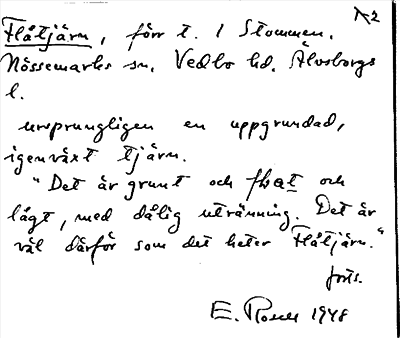 A2
Flåtjärn, förr t. 1 Stommen,
Nössemarks sn. Vedbo hd. Älvsborgs
l.
ursprungligen en uppgrundad,
igenväxt tjärn.
"Det är grunt och flat och
lågt, med dålig utränning. Det är
väl därför som det heter Flåtjärn."
forts.
E. 1948